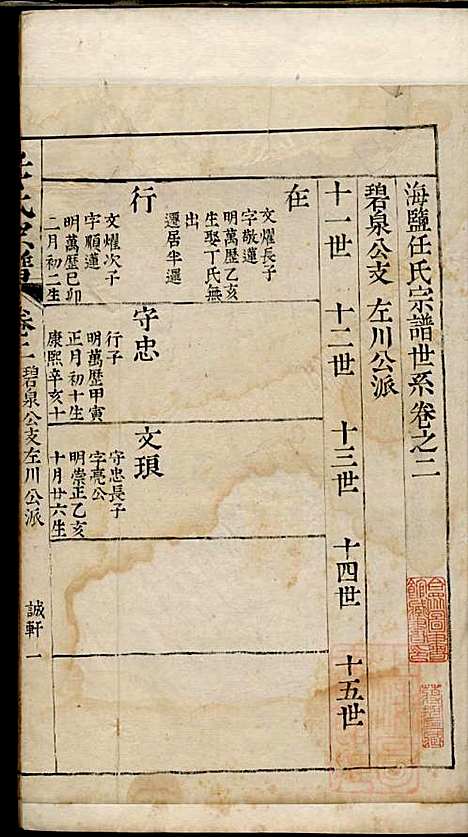 海鹽任氏宗譜世系卷之二
碧泉公支 左川公派
十一世 十二世 十三世 十四世 十五世
在
文燿長子
字敬蓮
明萬歷乙亥
生娶丁氏無
出
遷居半邏
行
文燿次子
字順蓮
明萬歷己卯
二月初二生
守忠
行子
明萬歷甲寅
正月初十生
康熙辛亥十
文琅
守忠長子
字亮公
明崇正乙亥
十月廿六生
任氏宗譜 卷之二 碧泉公支左川公派 誠軒 一